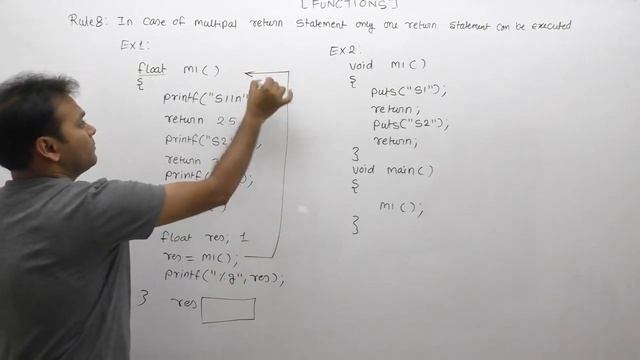 [FUNCTIONS]
Rule8: In case of multipal return statement only one return statement can be executed
Ex1:
float m1()
{
printf("S1\n"
return 25
printf("S2
return
printf(" );
float res; 1
res = m1();
printf("%g", res);
}
res
Ex2:
void m1()
{
puts("S1");
return;
puts("S2");
return;
}
void main()
{
m1();
}